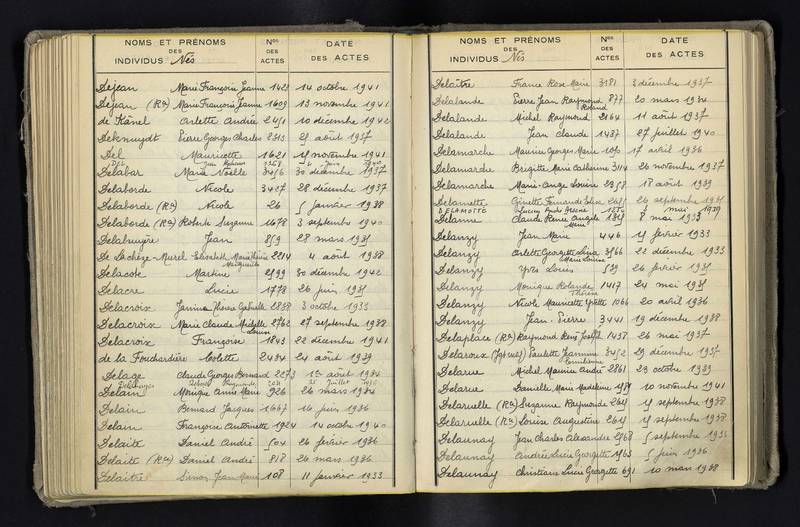 NOMS ET PRÉNOMS DES INDIVIDUS Nés Nos DES ACTES DATE DES ACTES
Dejean Marie Françoise Jeanne 1423 14 octobre 1941
Dejean (Ron) Marie Françoise Jeanne 1609 13 novembre 1941
de Känel Arlette Andrée 2451 10 décembre 1942
Dekenuydt Pierre Georges Charles 2313 août 1937
Del Mauricette 1621 novembre 1941
Delabar Marie Noëlle 3456 30 décembre 1937
Delaborde Nicole 3427 28 décembre 1937
Delaborde (Ron) Nicole 26 5 janvier 1938
Delaborde (Ron) Roberte Suzanne 1678 3 septembre 1940
Delabruyère Jean 859 28 mars 1935
De Lachèze-Murel Elisabeth Marie Marguerite 2214 4 août 1938
Delacote Martine 2599 30 décembre 1942
Delacre Lucie 1778 26 juin 1935
Delacroix Janine Gabrielle 2838 3 octobre 1933
Delacroix Marie Claude Michelle 2762 27 septembre 1938
Delacroix Françoise 1843 22 décembre 1941
de la Fouchardière Colette 2484 24 août 1939
Delage Claude Georges Bernard 2273 1er août 1934
Delain Monique Anne Marie 926 26 mars 1934
Delain Bernard Jacques 1667 16 juin 1936
Delain Françoise Antoinette 1924 14 octobre 1940
Delaite Daniel André 504 26 février 1936
Delaite (Ron) Daniel André 818 26 mars 1936
Delaitre Simon Jean Marie 108 11 janvier 1933
NOMS ET PRÉNOMS DES INDIVIDUS Nés Nos DES ACTES DATE DES ACTES
Delaître France Rose Marie 3181 3 décembre 1937
Delalande Pierre Jean Raymond Roland 877 20 mars 1934
Delalande Michel Raymond 2164 11 août 1937
Delalande Jean Claude 1437 27 juillet 1940
Delamarche Maurice Georges Marie 1050 17 avril 1936
Delamarche Brigitte Marie Catherine 3114 26 novembre 1937
Delamarche Marie-Ange Louise 2358 18 août 1939
Delamette Ginette Fernande 26 septembre 1935
DELAMOTTE Lucien André mai 1939
Delanne Claude René Angèle 8 mai 1933
Delanzy Jean Marie 446 février 1933
Delanzy Arlette Georgette Lina Marie Louise 3566 22 décembre 1933
Delanzy Yves Louis 539 26 février 1935
Delanzy Monique Rolande Thérèse 1417 24 mai 1935
Delanzy Nicole Mauricette Yvette 1066 20 avril 1936
Delanzy Jean-Pierre 3441 19 décembre 1938
Delaplace (Ron) Raymond René Joseph 1437 26 mai 1937
Delaroux Paulette Jeannine 3452 29 décembre 1937
Delarue Michel Maurice André 2861 29 octobre 1939
Delarue Danielle Marie Madeleine 1589 10 novembre 1941
Delaruelle (Ron) Suzanne Raymonde septembre 1938
Delaruelle (Ron) Louise Augustine septembre 1938
Delaunay Jean Charles Alexandre 2568 5 septembre 1935
Delaunay Andrée Lucie Georgette 1563 5 juin 1936
Delaunay Christiane Lucie Georgette 691 10 mars 1938